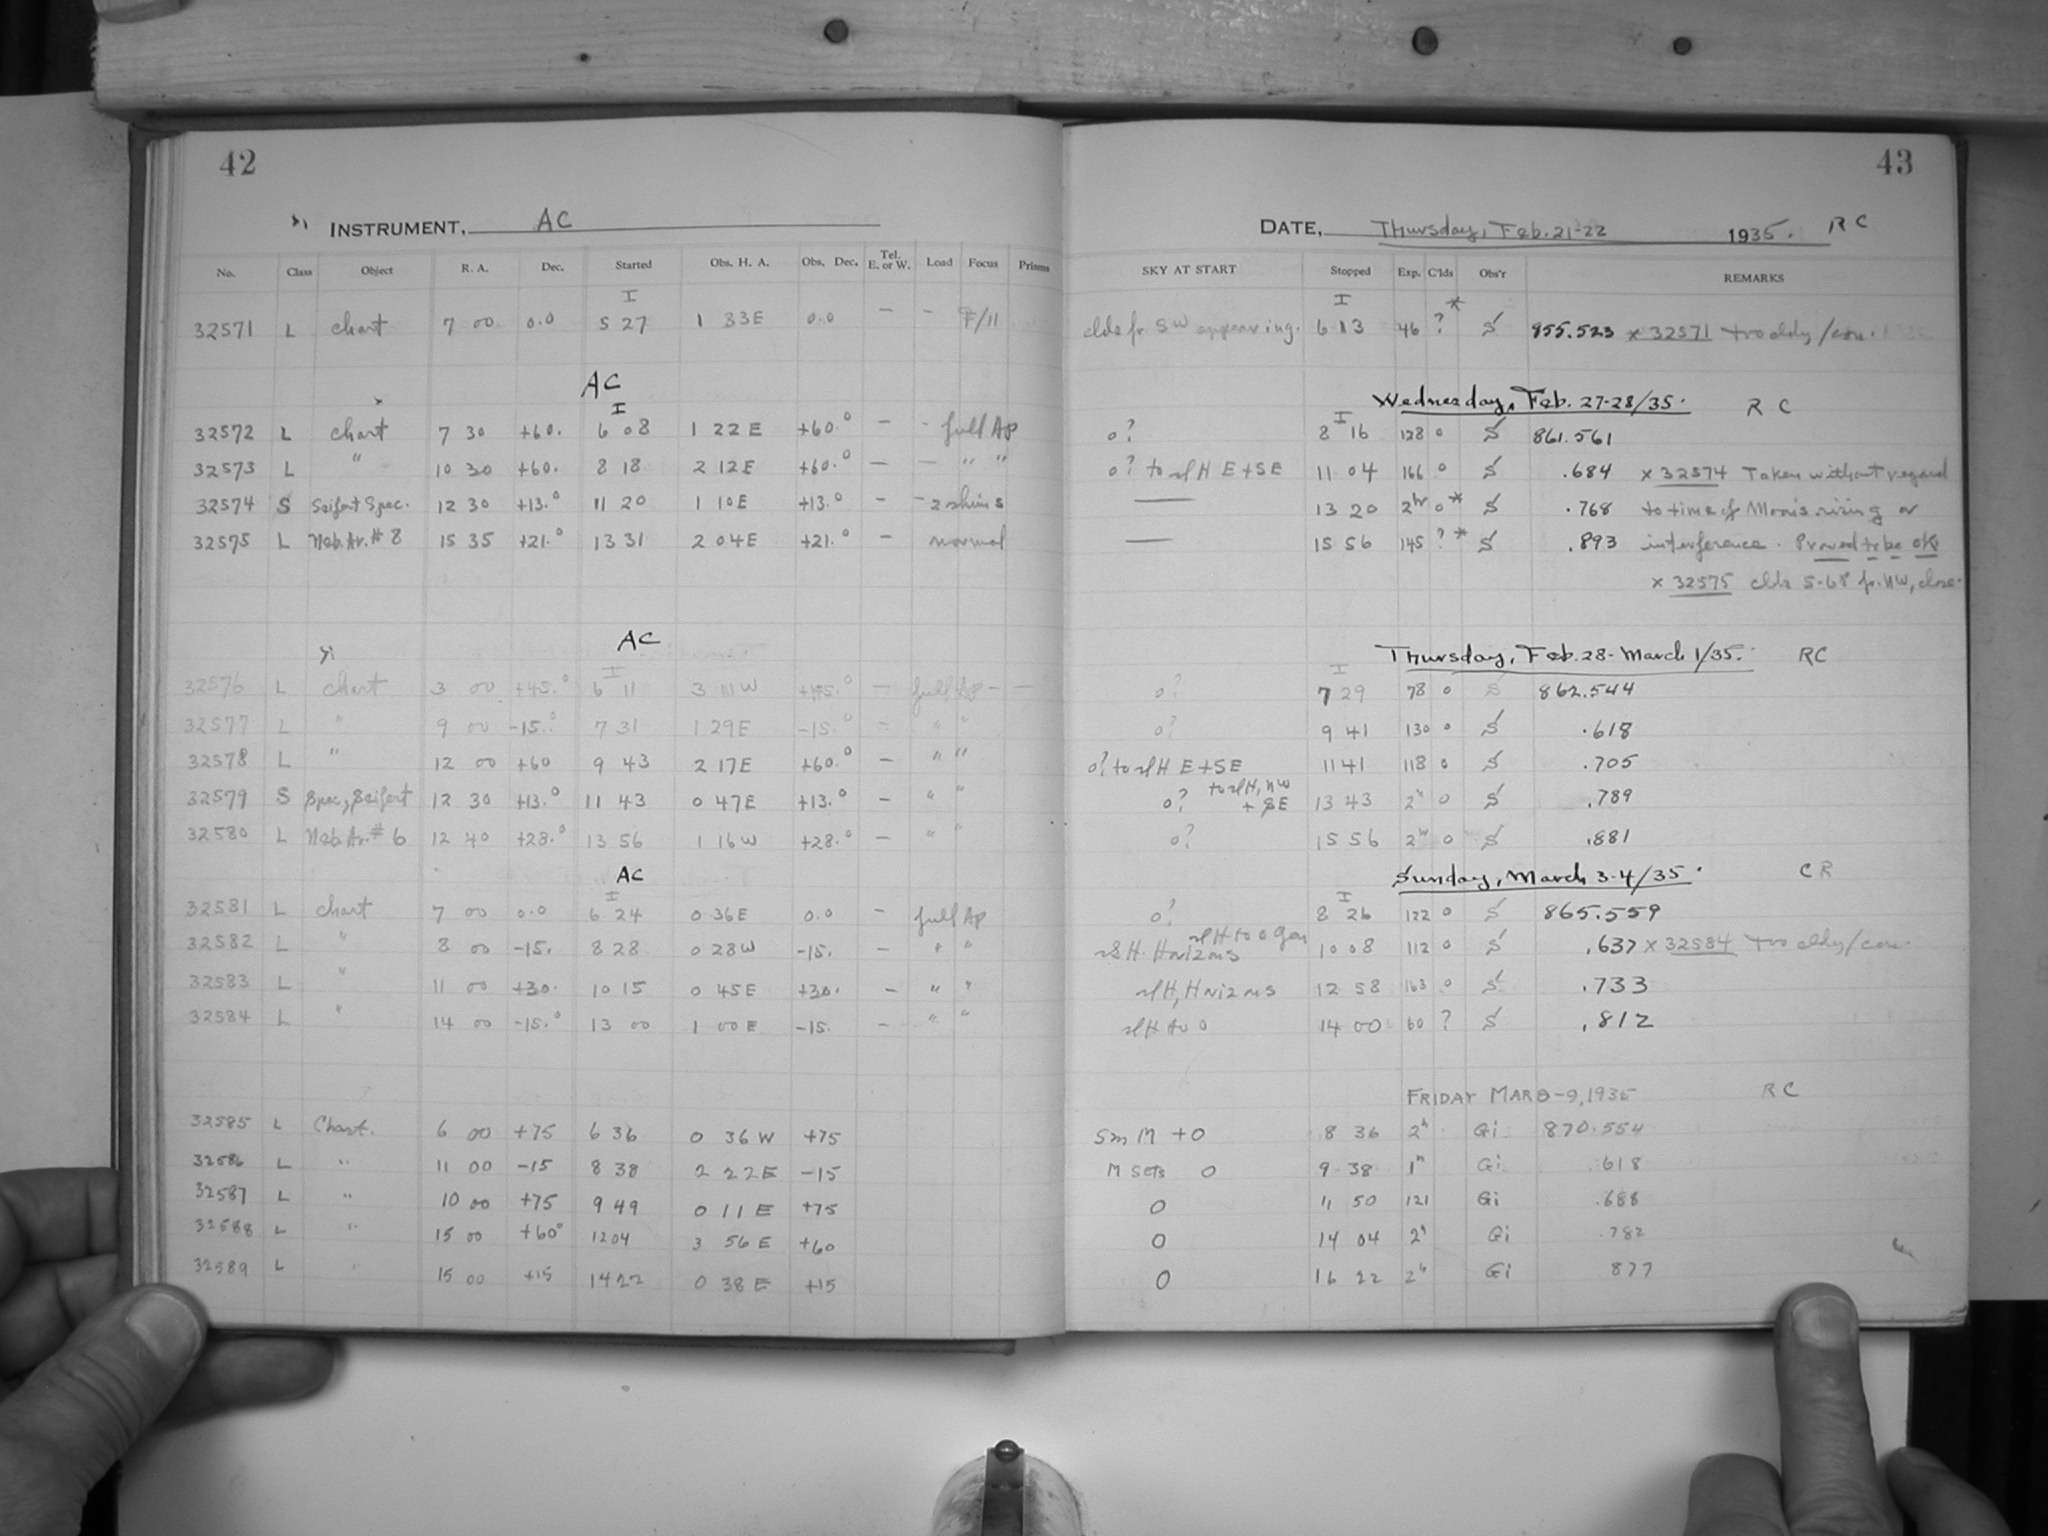 42
INSTRUMENT, AC
No. Class Object R. A. Dec. Started Obs. H. A. Obs. Dec. Tel. E. or W. Load Focus Prisms
I
32571 L chart 7 00 0.0 5 27 1 33E 0.0 — - F/11
AC
I
32572 L chart 7 30 +60. 6 08 1 22 E +60.° — - full Ap
32573 L " 10 30 +60. 8 18 2 12E +60.° — — " "
32574 S Seifert Spec. 12 30 +13.° 11 20 1 10E +13.° - - 2 shims
32575 L Neb. Ar. # 8 15 35 +21.° 13 31 2 04E +21.° - normal
AC
I
32576 L chart 3 00 +45.° 6 11 3 11W +45.° — full Ap - —
32577 L " 9 00 -15.° 7 31 1 29E -15.° - " "
32578 L " 12 00 +60 9 43 2 17E +60.° - " "
32579 S Spec, Seifert 12 30 +13.° 11 43 0 47E +13.° - " "
32580 L Neb. Ar. # 6 12 40 +28.° 13 56 1 16W +28.° — " "
AC
I
32581 L chart 7 00 0.0 6 24 0 36E 0.0 - full Ap
32582 L " 8 00 -15. 8 28 0 28W -15. - " "
32583 L " 11 00 +30. 10 15 0 45E +30. - " "
32584 L " 14 00 -15.° 13 00 1 00E -15. - " "
32585 L Chart. 6 00 +75 6 36 0 36 W +75
32586 L " 11 00 -15 8 38 2 22E -15
32587 L " 10 00 +75 9 49 0 11 E +75
32588 L " 15 00 +60° 1204 3 56 E +60
32589 L " 15 00 +15 1422 0 38 E +15
43
DATE, Thursday, Feb. 21-22 1935. R C
SKY AT START Stopped Exp. C'lds Obs'r REMARKS
I
clds fr. SW appearing. 6 13 46 ?* S 855.523 x 32571 too cldy/con.
Wednesday, Feb. 27-28/35. R C
I
0? 8 16 128 0 S 861.561
0? to H E+SE 11 04 166 0 S .684 x 32574 Taken without regard
— 13 20 2hr 0* S .768 to time of Moon's rising or
— 15 56 145 ?* S .893 interference. Proved to be OK
x 32575 clds fr. NW, close.
Thursday, Feb. 28- March 1/35. RC
I
0? 7 29 78 0 S 862.544
0? 9 41 130 0 S .618
0? to H E+SE 1141 118 0 S .705
0? to H, NW + SE 13 43 2h 0 S .789
0? 15 56 2h 0 S .881
Sunday, March 3-4/35. C R
I
0? 8 26 122 0 S 865.559
H. Horizons H to 0 10 08 112 0 S .637 x 32584 too cldy/con.
H, Horizons 12 58 163 0 S .733
H to 0 14 00 60 ? S .812
FRIDAY MAR 8-9, 1935 R C
Sm M + 0 8 36 2h Gi 870.554
M sets 0 9 38 1h Gi .618
0 11 50 121 Gi .688
0 14 04 2h Gi .782
0 16 22 2h Gi 877